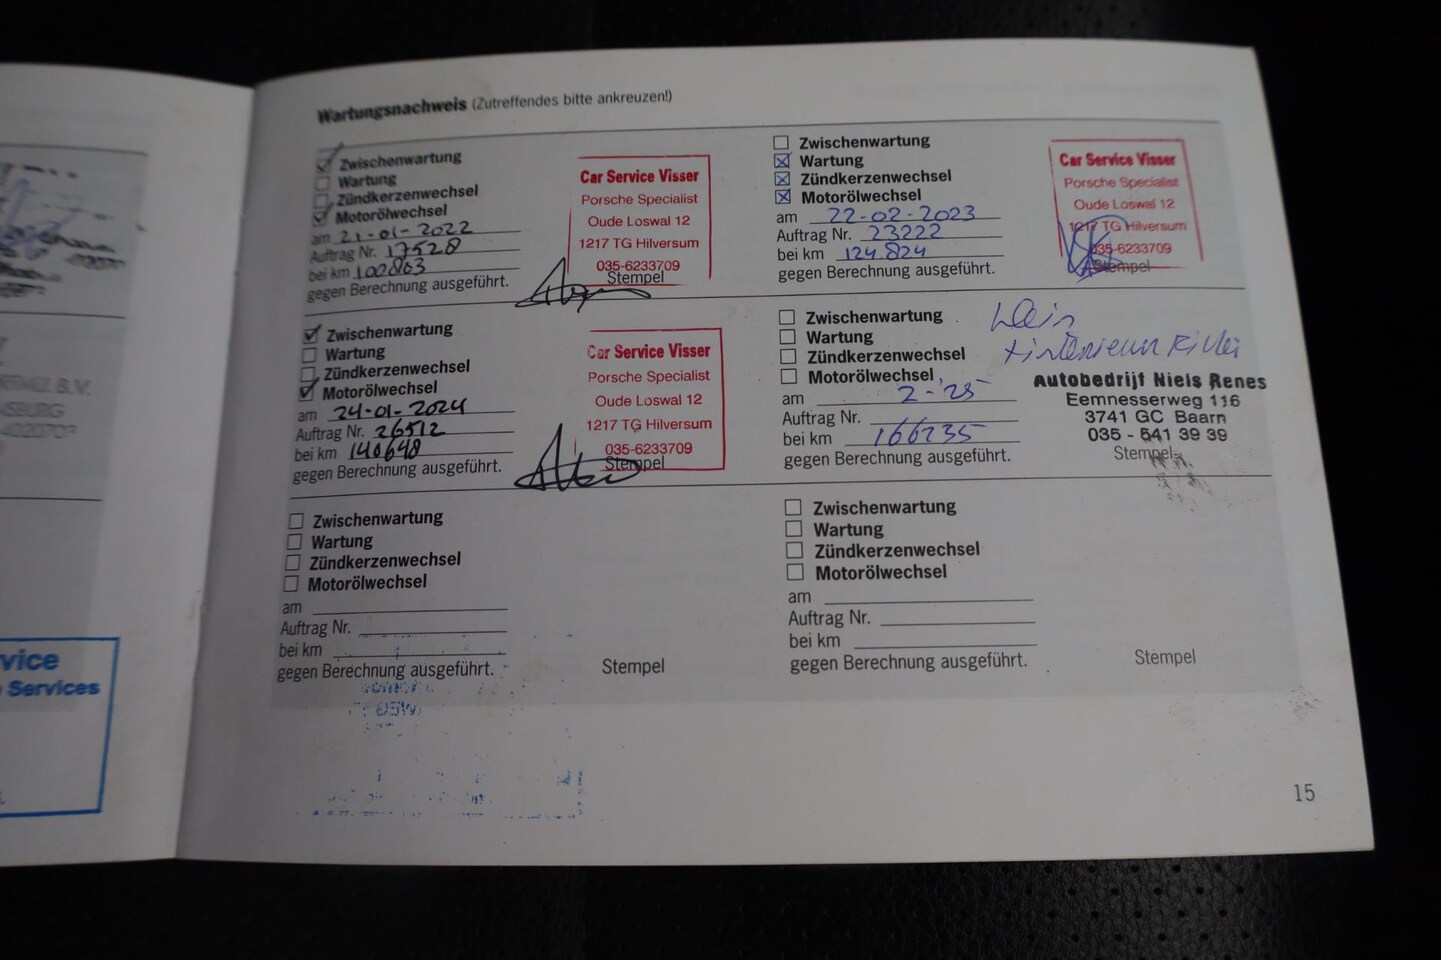 Wartungsnachweis (Zutreffendes bitte ankreuzen!)
Zwischenwartung
Wartung
Zündkerzenwechsel
Motorölwechsel
am 21-01-2022
Auftrag Nr. 17528
bei km 100863
gegen Berechnung ausgeführt.
Car Service Visser
Porsche Specialist
Oude Loswal 12
1217 TG Hilversum
035-6233709
Stempel
Zwischenwartung
Wartung
Zündkerzenwechsel
Motorölwechsel
am 22-02-2023
Auftrag Nr. 23222
bei km 124.824
gegen Berechnung ausgeführt.
Car Service Visser
Porsche Specialist
Oude Loswal 12
1217 TG Hilversum
035-6233709
Stempel
Zwischenwartung
Wartung
Zündkerzenwechsel
Motorölwechsel
am 24-01-2024
Auftrag Nr. 26512
bei km 140648
gegen Berechnung ausgeführt.
Car Service Visser
Porsche Specialist
Oude Loswal 12
1217 TG Hilversum
035-6233709
Stempel
Zwischenwartung
Wartung
Zündkerzenwechsel
Motorölwechsel
am 2-'25
Auftrag Nr.
bei km 166235
gegen Berechnung ausgeführt.
Klein
Autobedrijf Niels Renes
Eemnesserweg 116
3741 GC Baarn
035 - 541 39 39
Stempel
Zwischenwartung
Wartung
Zündkerzenwechsel
Motorölwechsel
am
Auftrag Nr.
bei km
gegen Berechnung ausgeführt.
Stempel
Zwischenwartung
Wartung
Zündkerzenwechsel
Motorölwechsel
am
Auftrag Nr.
bei km
gegen Berechnung ausgeführt.
Stempel
vice
Services
15